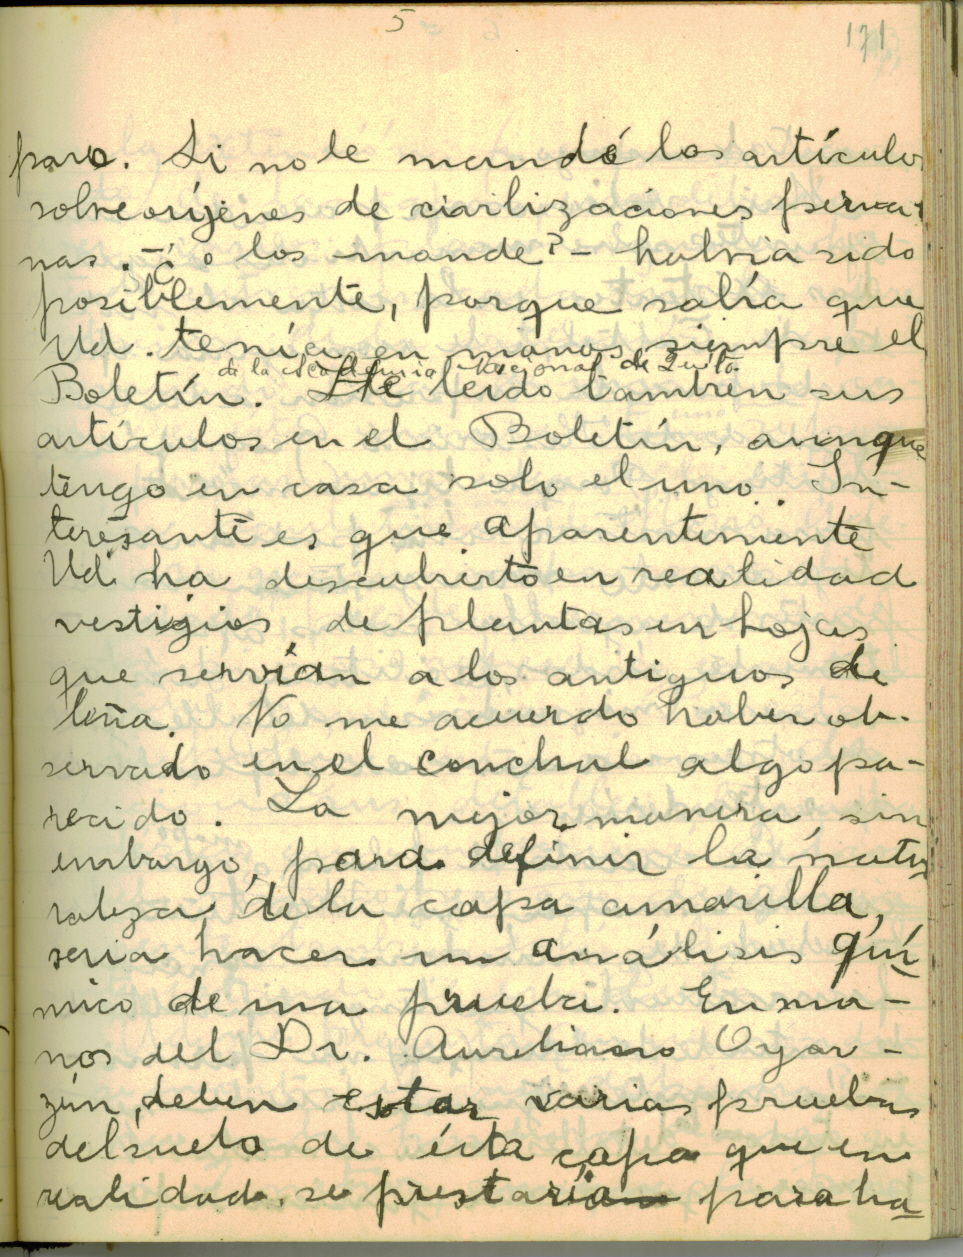 5
171
paro. Si no le mandé los artículos
sobre oríjenes de civilizaciones perua-
nas. – ¿o los mande? – habria sido
posiblemente, porque sabía que
Ud. tenía en manos siempre el
de la Academia Nacional de Quito
Boletín. He leido tambien sus
artículos en el Boletín, aunque
tengo en casa solo el uno. In-
teresante es que aparentemente
Ud ha descubierto en realidad
vestigios de plantas en hojas
que servían a los antiguos de
leña. No me acuerdo haber ob-
servado en el conchal algo pa-
recido. La mejor manera, sin
embargo, para definir la natu
raleza de la capa amarilla,
seria hacer un análisis quí
mico de una prueba. En ma-
nos del Dr. Aureliano Oyar-
zún, deben estar varias pruebas
del suelo de ésta capa que en
realidad se prestaría para ha